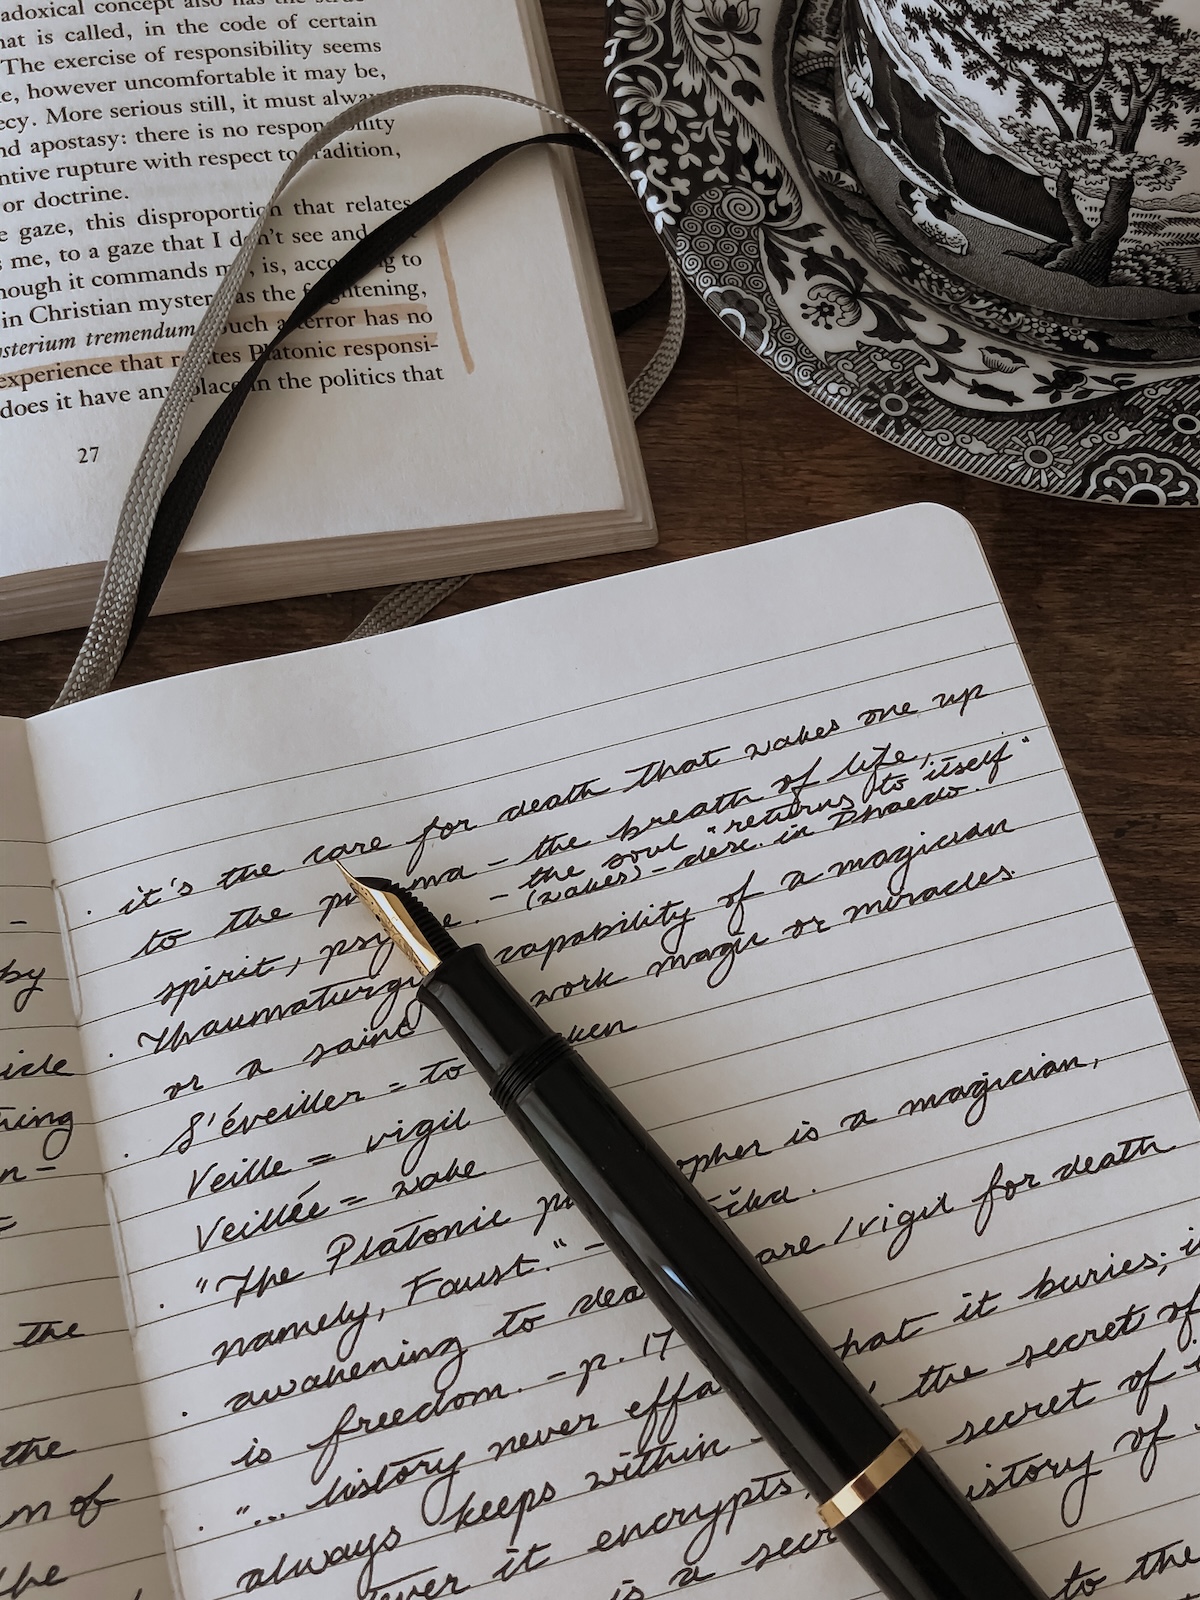 adoxical concept also has the
hat is called, in the code of certain
The exercise of responsibility seems
e, however uncomfortable it may be,
ecy. More serious still, it must alway
nd apostasy: there is no responsibility
ntive rupture with respect to tradition,
or doctrine.
e gaze, this disproportion that relates
s me, to a gaze that I don't see and
hough it commands me, is, according to
in Christian mystery as the frightening,
sterium tremendum. Such a terror has no
experience that relates Platonic responsi-
does it have any place in the politics that
27
· it's the care for death that wakes one up
to the pneuma - the breath of life,
spirit, psyche. - the soul "returns to itself"
(wakes) - desc. in Phaedo.
· Thaumaturgy capability of a magician
or a saint work magic or miracles.
· S'éveiller = to awaken
Veille = vigil
Veillée = wake
· "The Platonic philosopher is a magician,
namely, Faust." - točka.
· awakening to death care/vigil for death
is freedom. - p. 17
· "... history never effaces what it buries; it
always keeps within - the secret of
ever it encrypts, secret of
is a secret history of
to the
-
by
icle
ning
n-
=
the
the
m of
the